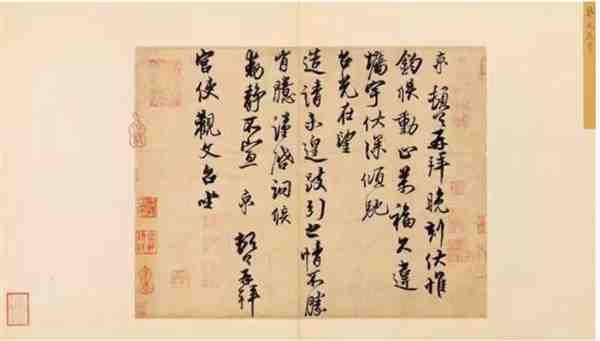 京 頓首再拜 晚刻伏惟
鈞候動止萬福久違
牆宇伏深傾馳
台光在望
造請未遑跂引之情不勝
胷臆謹啓詞候
動靜不宣 京 頓首再拜
宮使觀文台坐